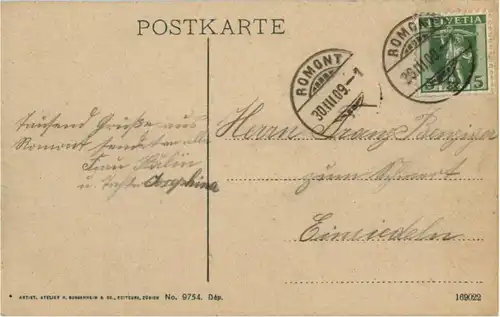 POSTKARTE
HELVETIA
5
ROMONT
30.III.09-1
ROMONT
30.III.09
Tausend Grüße aus
Romont sendet an alle
Frau Kälin
u. Tochter Josephina
Herrn Franz Benziger
zum
Einsiedeln
ARTIST. ATELIER H. GUGGENHEIM & CO., EDITEURS, ZÜRICH No. 9754. Dép.
169022